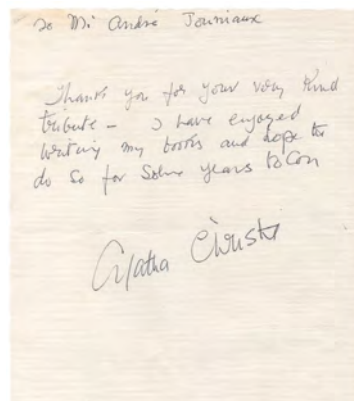 To Mr André Jouniaux
Thank you for your very kind
tribute – I have enjoyed
writing my books and hope to
do so for some years to con
Agatha Christie